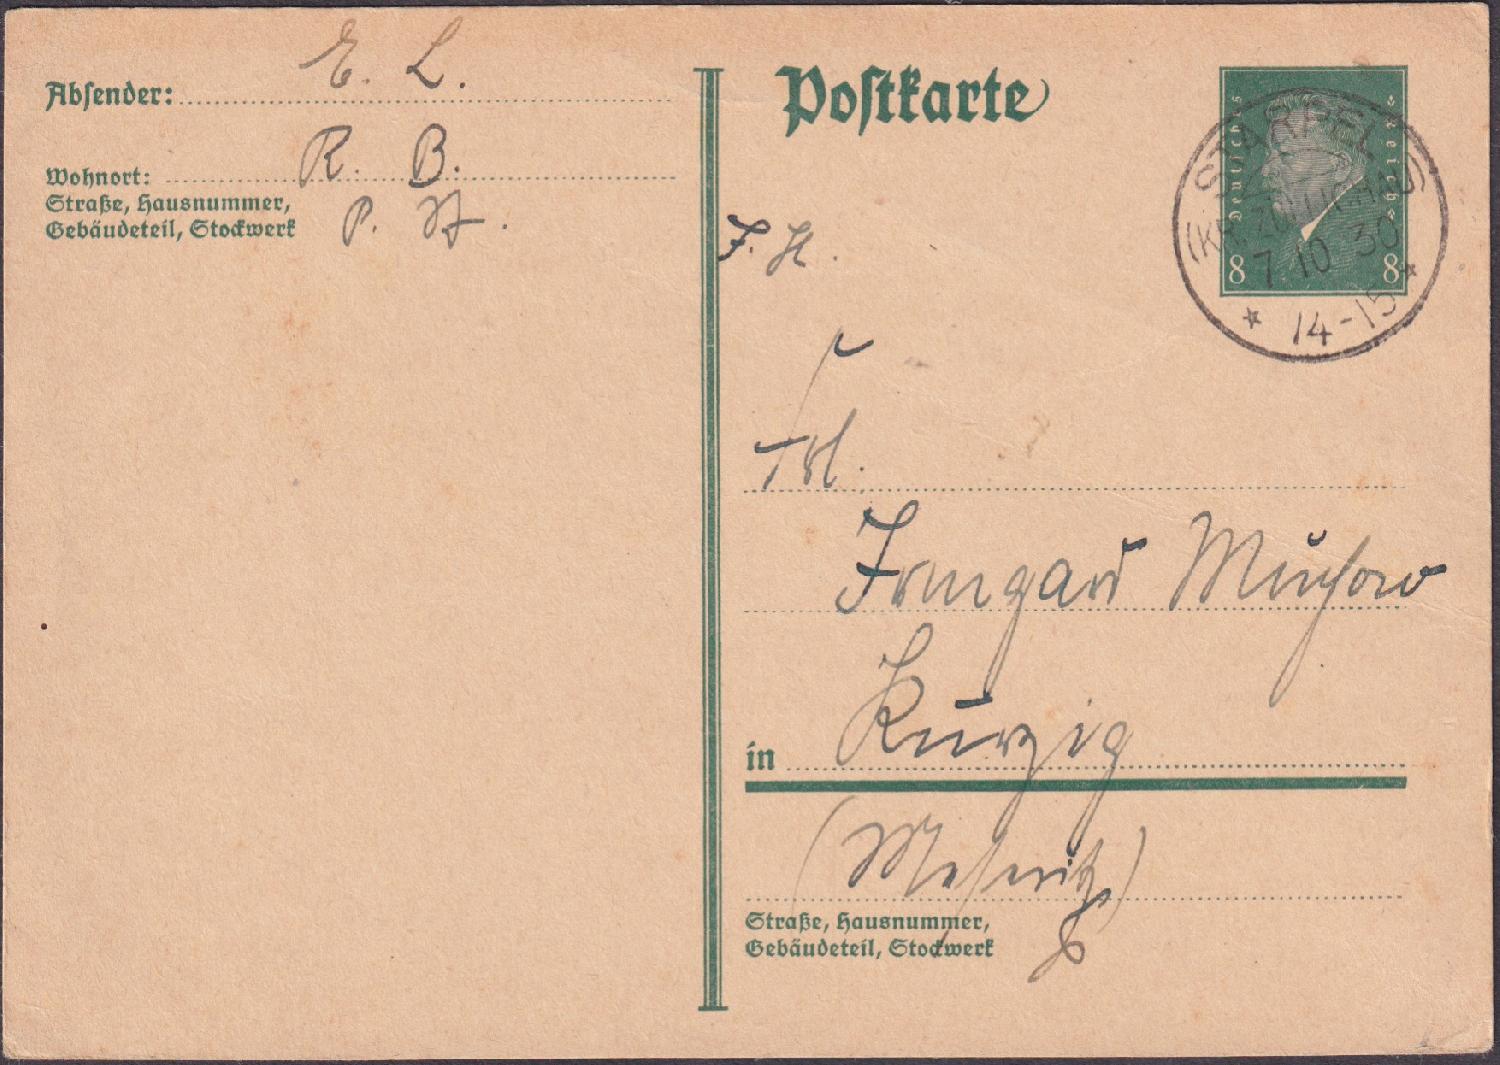 Absender: E. L.
Wohnort: R. B.
Straße, Hausnummer,
Gebäudeteil, Stockwerk
P. St.
Postkarte
Deutsches Reich
8 8
STARPEL
(KR. ZÜLLICHAU)
7 10 30
14-15
F. H.
Frl.
Irmgard Muchow
in Kurzig
(Meseritz)
Straße, Hausnummer,
Gebäudeteil, Stockwerk